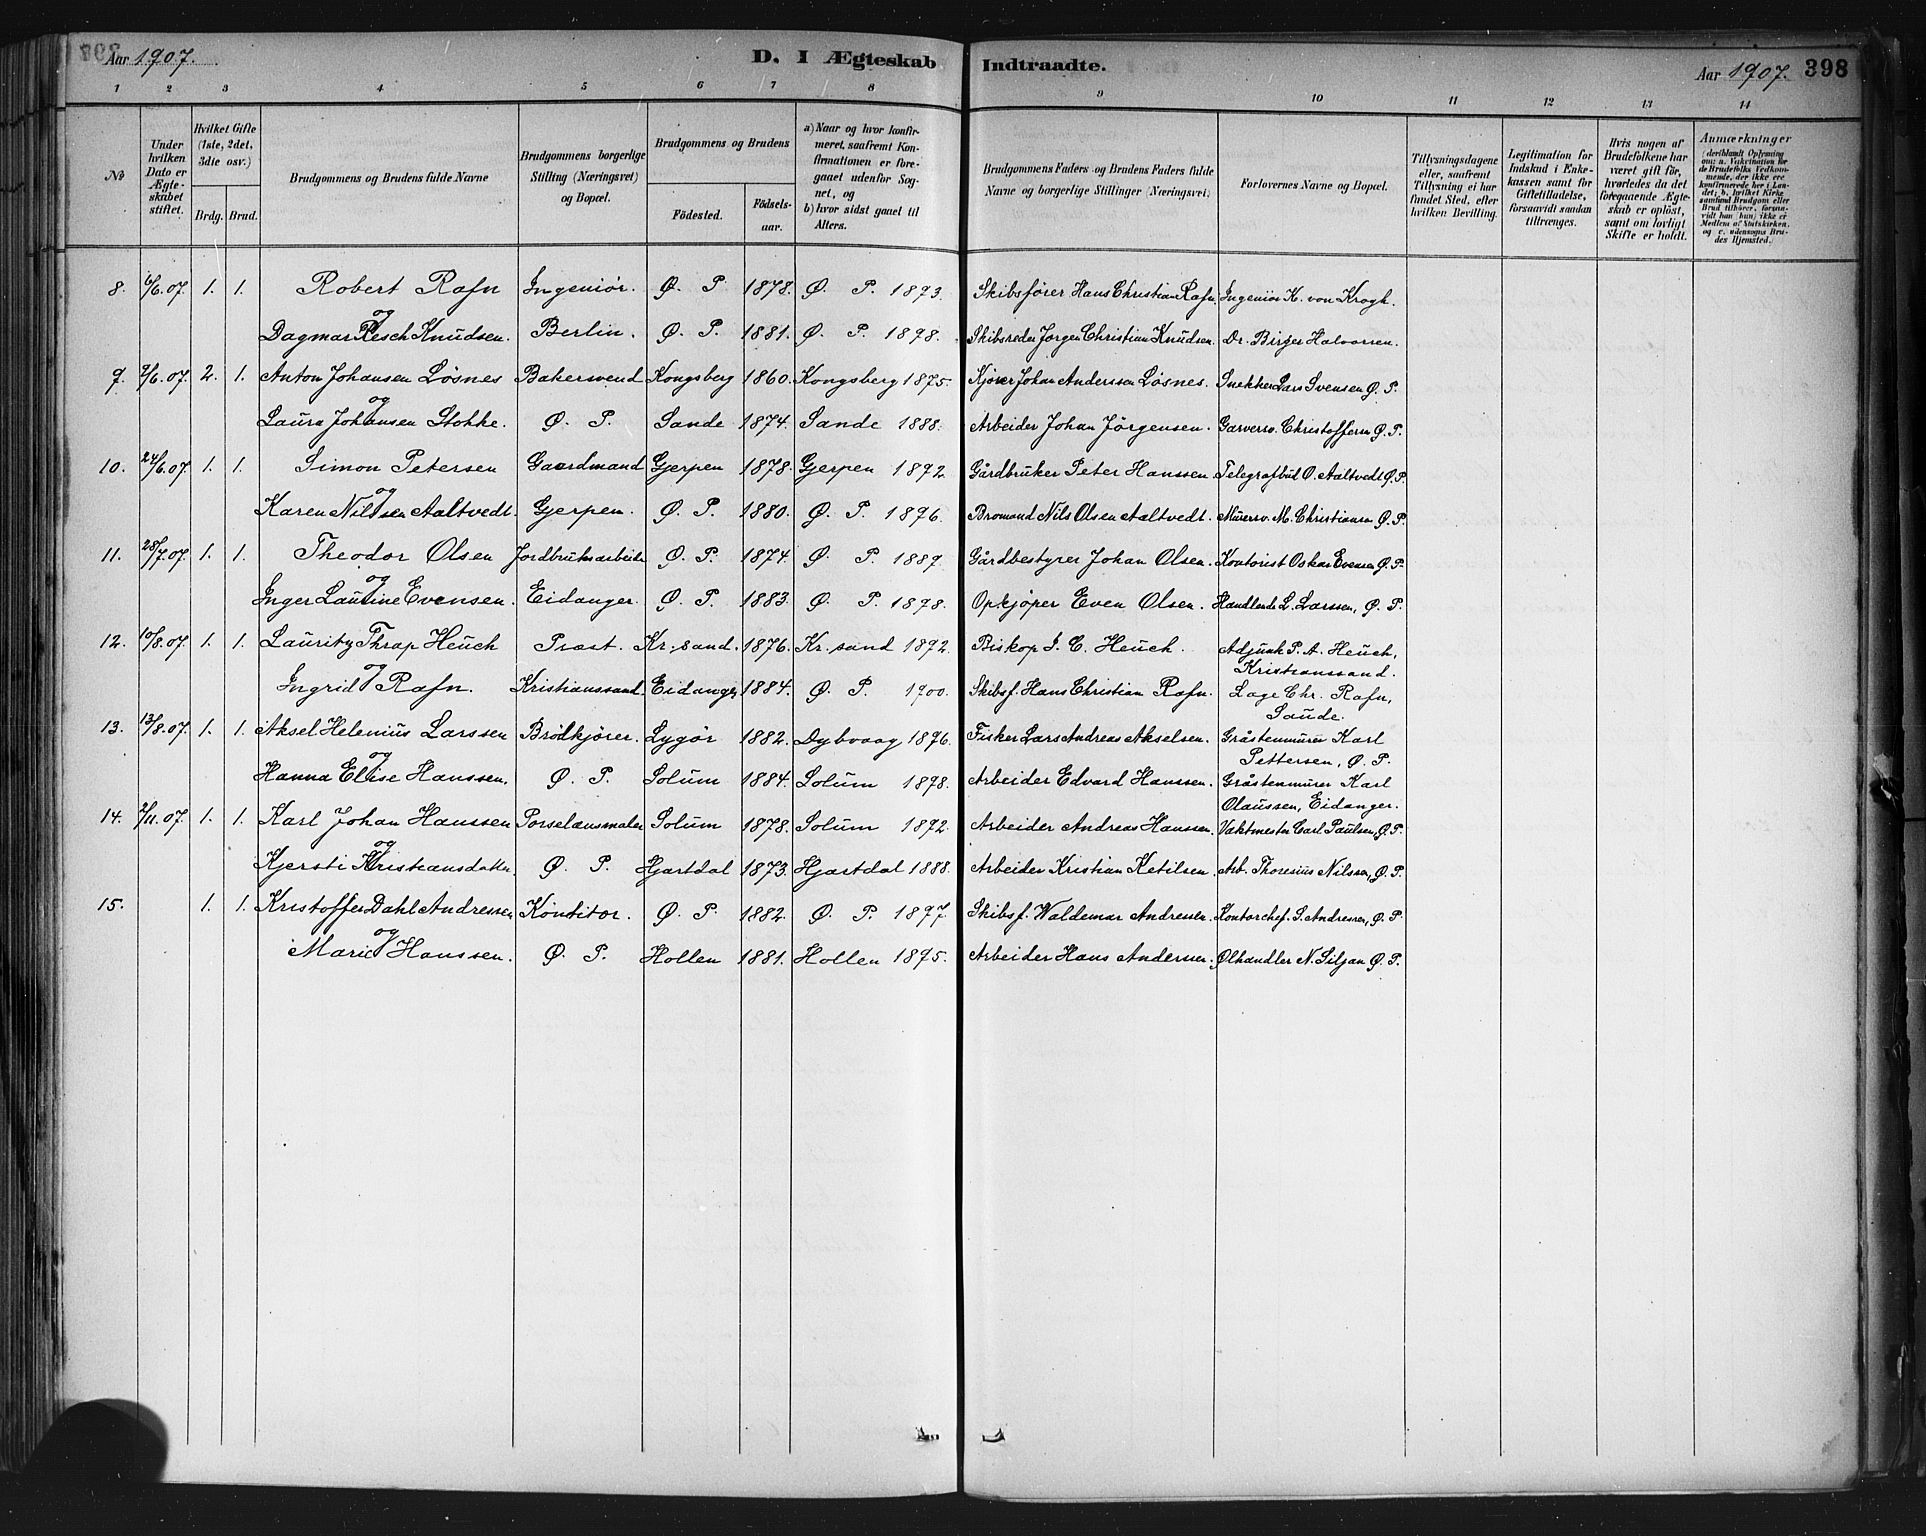 Aar 1907.
D. I Ægteskab Indtraadte.
Aar 1907. 398
1 2 3 4 5 6 7 8 9 10 11 12 13 14
No
Under hvilken Dato er Ægteskabet stiftet.
Hvilket Gifte (1ste, 2det, 3die osv.)
Brdg. Brud.
Brudgommens og Brudens fulde Navne
Brudgommens borgerlige Stilling (Næringsvei) og Bopæl.
Brudgommens og Brudens
Födested. Födselsaar.
a) Naar og hvor konfirmeret, saafremt Konfirmationen er foregaaet udenfor Sognet, og
b) hvor sidst gaaet til Alters.
Brudgommens Faders og Brudens Faders fulde Navne og borgerlige Stillinger (Næringsvei).
Forlovernes Navne og Bopæl.
Tillysningsdagene eller, saafremt Tillysning ei har fundet Sted, efter hvilken Bevilling.
Legitimation for Indskud i Enkekassen samt for Giftetilladelse, forsaavidt saadan tiltrænges.
Hvis nogen af Brudefolkene har været gift för, hvorledes da det foregaaende Ægteskab er oplöst, samt om lovligt Skifte er holdt.
Anmærkninger (deriblandt Oplysning om: a. Vakcination for de Brudefolks Vedkommende, der ikke ere konfirmerede her i Landet; b. hvilket Kirkesamfund Brudgom eller Brud tilhörer, forsaavidt han (hun) ikke er Medlem af Statskirken, og c. udensogns Brudes Hjemsted.)
8. 6/6.07. 1. 1. Robert Rafn Ingeniör. Ø. P. 1878. Ø. P. 1893. Skibsförer Hans Christian Rafn. Ingeniör K. von Krogh.
og
Dagmar Resch Knudsen. Berlin. Ø. P. 1881. Ø. P. 1898. Skibsreder Jörgen Christian Knudsen. Dr. Birger Halvorsen.
9. 9/6.07. 2. 1. Anton Johansen Løsnes Bakersvend Kongsberg 1860. Kongsberg 1875. Kjörer Johan Anderssen Løsnes. Snekker Lars Svensen Ø. P.
og
Laura Johansen Stokke. Ø. P. Sande 1874. Sande 1888. Arbeider Johan Jörgensen. Garversv. Christoffersen Ø. P.
10. 24/6.07. 1. 1. Simon Petersen Gaardmand Gjerpen 1878. Gjerpen 1892. Gårdbruker Peter Hanssen Telegrafbud O. Aaltvedt Ø. P.
og
Karen Nilsen Aaltvedt. Gjerpen. Ø. P. 1880. Ø. P. 1896. Bromand Nils Olsen Aaltvedt. Murersv. M. Christiansen Ø. P.
11. 28/7.07. 1. 1. Theodor Olsen Jordbruksarbeider Ø. P. 1874. Ø. P. 1889. Gårdbestyrer Johan Olsen. Kontorist Oskar Evensen Ø. P.
og
Inger Laurine Evensen. Eidanger. Ø. P. 1883. Ø. P. 1898. Opkjöper Even Olsen. Handlende L. Larssen, Ø. P.
12. 10/8.07. 1. 1. Lauritz Thrap Heuch Prast. Kr.sand. 1876. Kr.sand 1892. Biskop J. C. Heuch. Adjunk P. A. Heuch,
Kristianssand.
og
Ingrid Rafn. Kristianssand. Eidanger 1884. Ø. P. 1900. Skibsf. Hans Christian Rafn. Lage Chr. Rafn,
Saude.
13. 13/8.07. 1. 1. Aksel Helenius Larssen Brödkjörer. Lygör 1882. Dybvaag 1896. Fisker Lars Andreas Akselsen. Gråstenmurer Karl
Pettersen, Ø. P.
og
Hanna Elise Hanssen. Ø. P. Solum 1884. Solum 1898. Arbeider Edvard Hanssen. Gråstenmurer Karl
Olaussen, Eidanger.
14. 2/11.07. 1. 1. Karl Johan Hanssen Porselænsmaler Solum 1878. Solum 1892. Arbeider Andreas Hanssen. Vaktmester Carl Paulsen, Ø. P.
og
Kjersti Kristiansdatter. Ø. P. Hjartdal 1873. Hjartdal 1888. Arbeider Kristian Ketilsen. Arb. Thoresius Nilssen, Ø. P.
15. 1. 1. Kristoffer Dahl Andressen Konditor. Ø. P. 1882. Ø. P. 1897. Skibsf. Waldemar Andressen. Kontorchef. S. Andressen, Ø. P.
og
Marie Hanssen. Ø. P. Hollen 1881. Hollen 1895. Arbeider Hans Andersen. Ølhandler N. Siljan Ø. P.